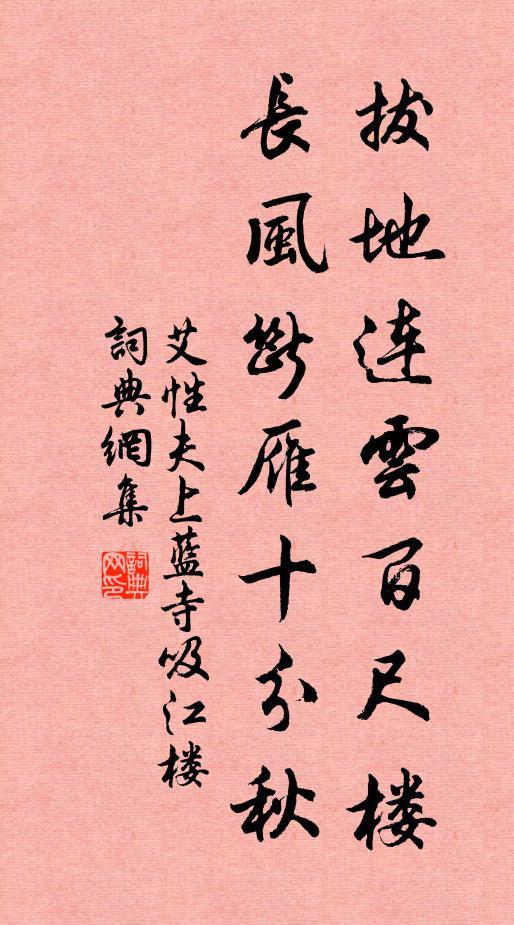 拔地連雲百尺楼
長風斷雁十分秋
艾性夫上藍寺吸江楼
詞典網集
詞典网印